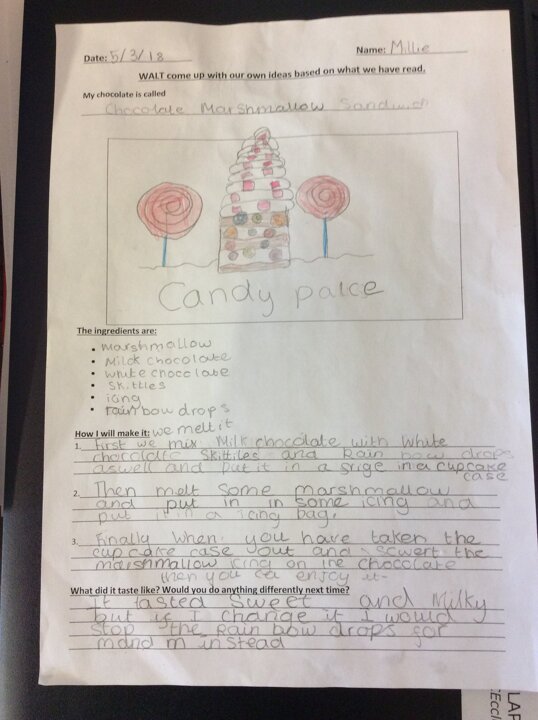 Date: 5/3/18
Name: Millie
WALT come up with our own ideas based on what we have read.
My chocolate is called
Chocolate Marshmallow Sandwich
Candy palce
The ingredients are:
• Marshmallow
• Milck chocolate
• white chocclate
• Skittles
• icing
• rain bow drops
How I will make it: we melt it
1. First we mix Milk chocolate with white
chocolate Skittiles and Rain bow drops
aswell and put it in a frige in a cupcake
case
2. Then melt Some marshmallow
and put in in some icing and
put it in a icing bag.
3. Finally when you have taken the
cup cake case out and scwert the
marshmallow icing on the chocolate
then you ca enjoy it
What did it taste like? Would you do anything differently next time?
It tasted Sweet and Milky
but if I change it I would
stop the Rain bow drops for
mand m instead
LAP